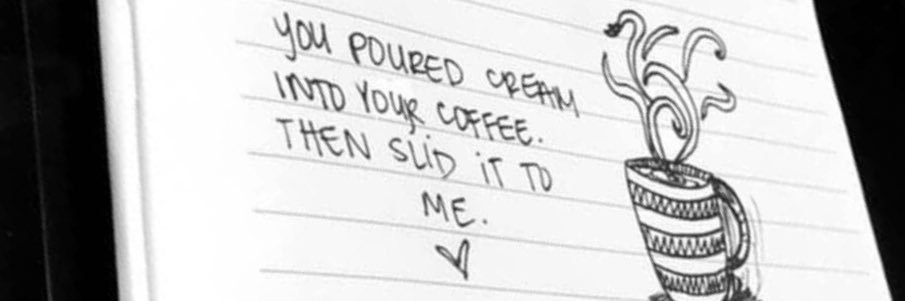 YOU POURED CREAM
INTO YOUR COFFEE.
THEN SLID IT TO
ME.